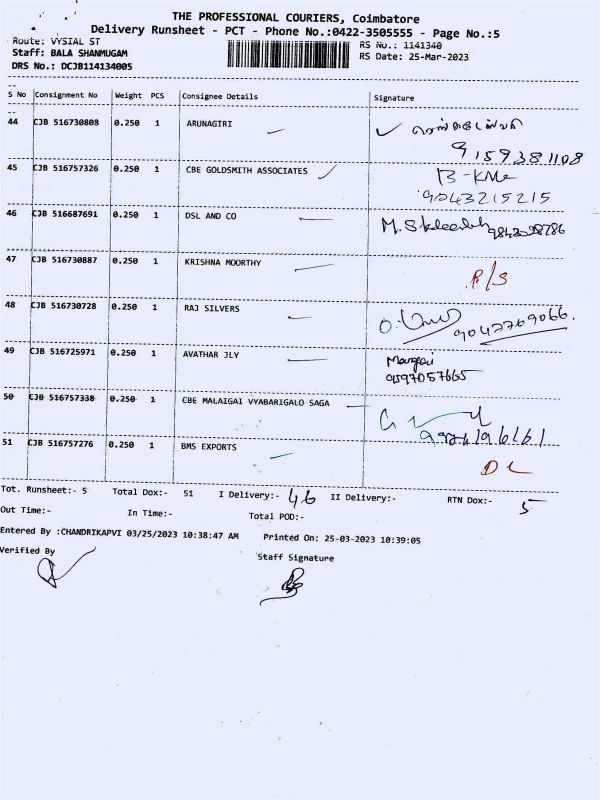 THE PROFESSIONAL COURIERS, Coimbatore
Delivery Runsheet - PCT - Phone No.:0422-3505555 - Page No.:5
Route: VYSIAL ST RS No.: 1141340
Staff: BALA SHANMUGAM RS Date: 25-Mar-2023
DRS No.: DCJB114134005
S No Consignment No Weight PCS Consignee Details Signature
44 CJB 516730808 0.250 1 ARUNAGIRI
9159381108
45 CJB 516757326 0.250 1 CBE GOLDSMITH ASSOCIATES
9043215215
46 CJB 516687691 0.250 1 DSL AND CO M.
47 CJB 516730887 0.250 1 KRISHNA MOORTHY
R/S
48 CJB 516730728 0.250 1 RAJ SILVERS
9047769066.
49 CJB 516725971 0.250 1 AVATHAR JLY
9597057665
50 CJB 516757338 0.250 1 CBE MALAIGAI VYABARIGALO SAGA
51 CJB 516757276 0.250 1 BMS EXPORTS
DL
Tot. Runsheet:- 5 Total Dox:- 51 I Delivery:- 46 II Delivery:- RTN Dox:- 5
Out Time:- In Time:- Total POD:-
Entered By :CHANDRIKAPVI 03/25/2023 10:38:47 AM Printed On: 25-03-2023 10:39:05
Verified By Staff Signature